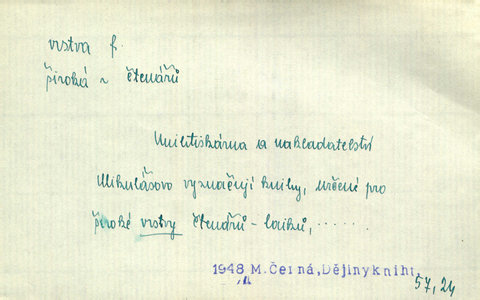 vrstva f.
široká ~ čtenářů
Knihtiskárna a nakladatelství
Mikulášovo vyznačují knihy, určené pro
široké vrstvy čtenářů - laiků, ......
1948 M. Černá, Dějiny kniht.
57, 24